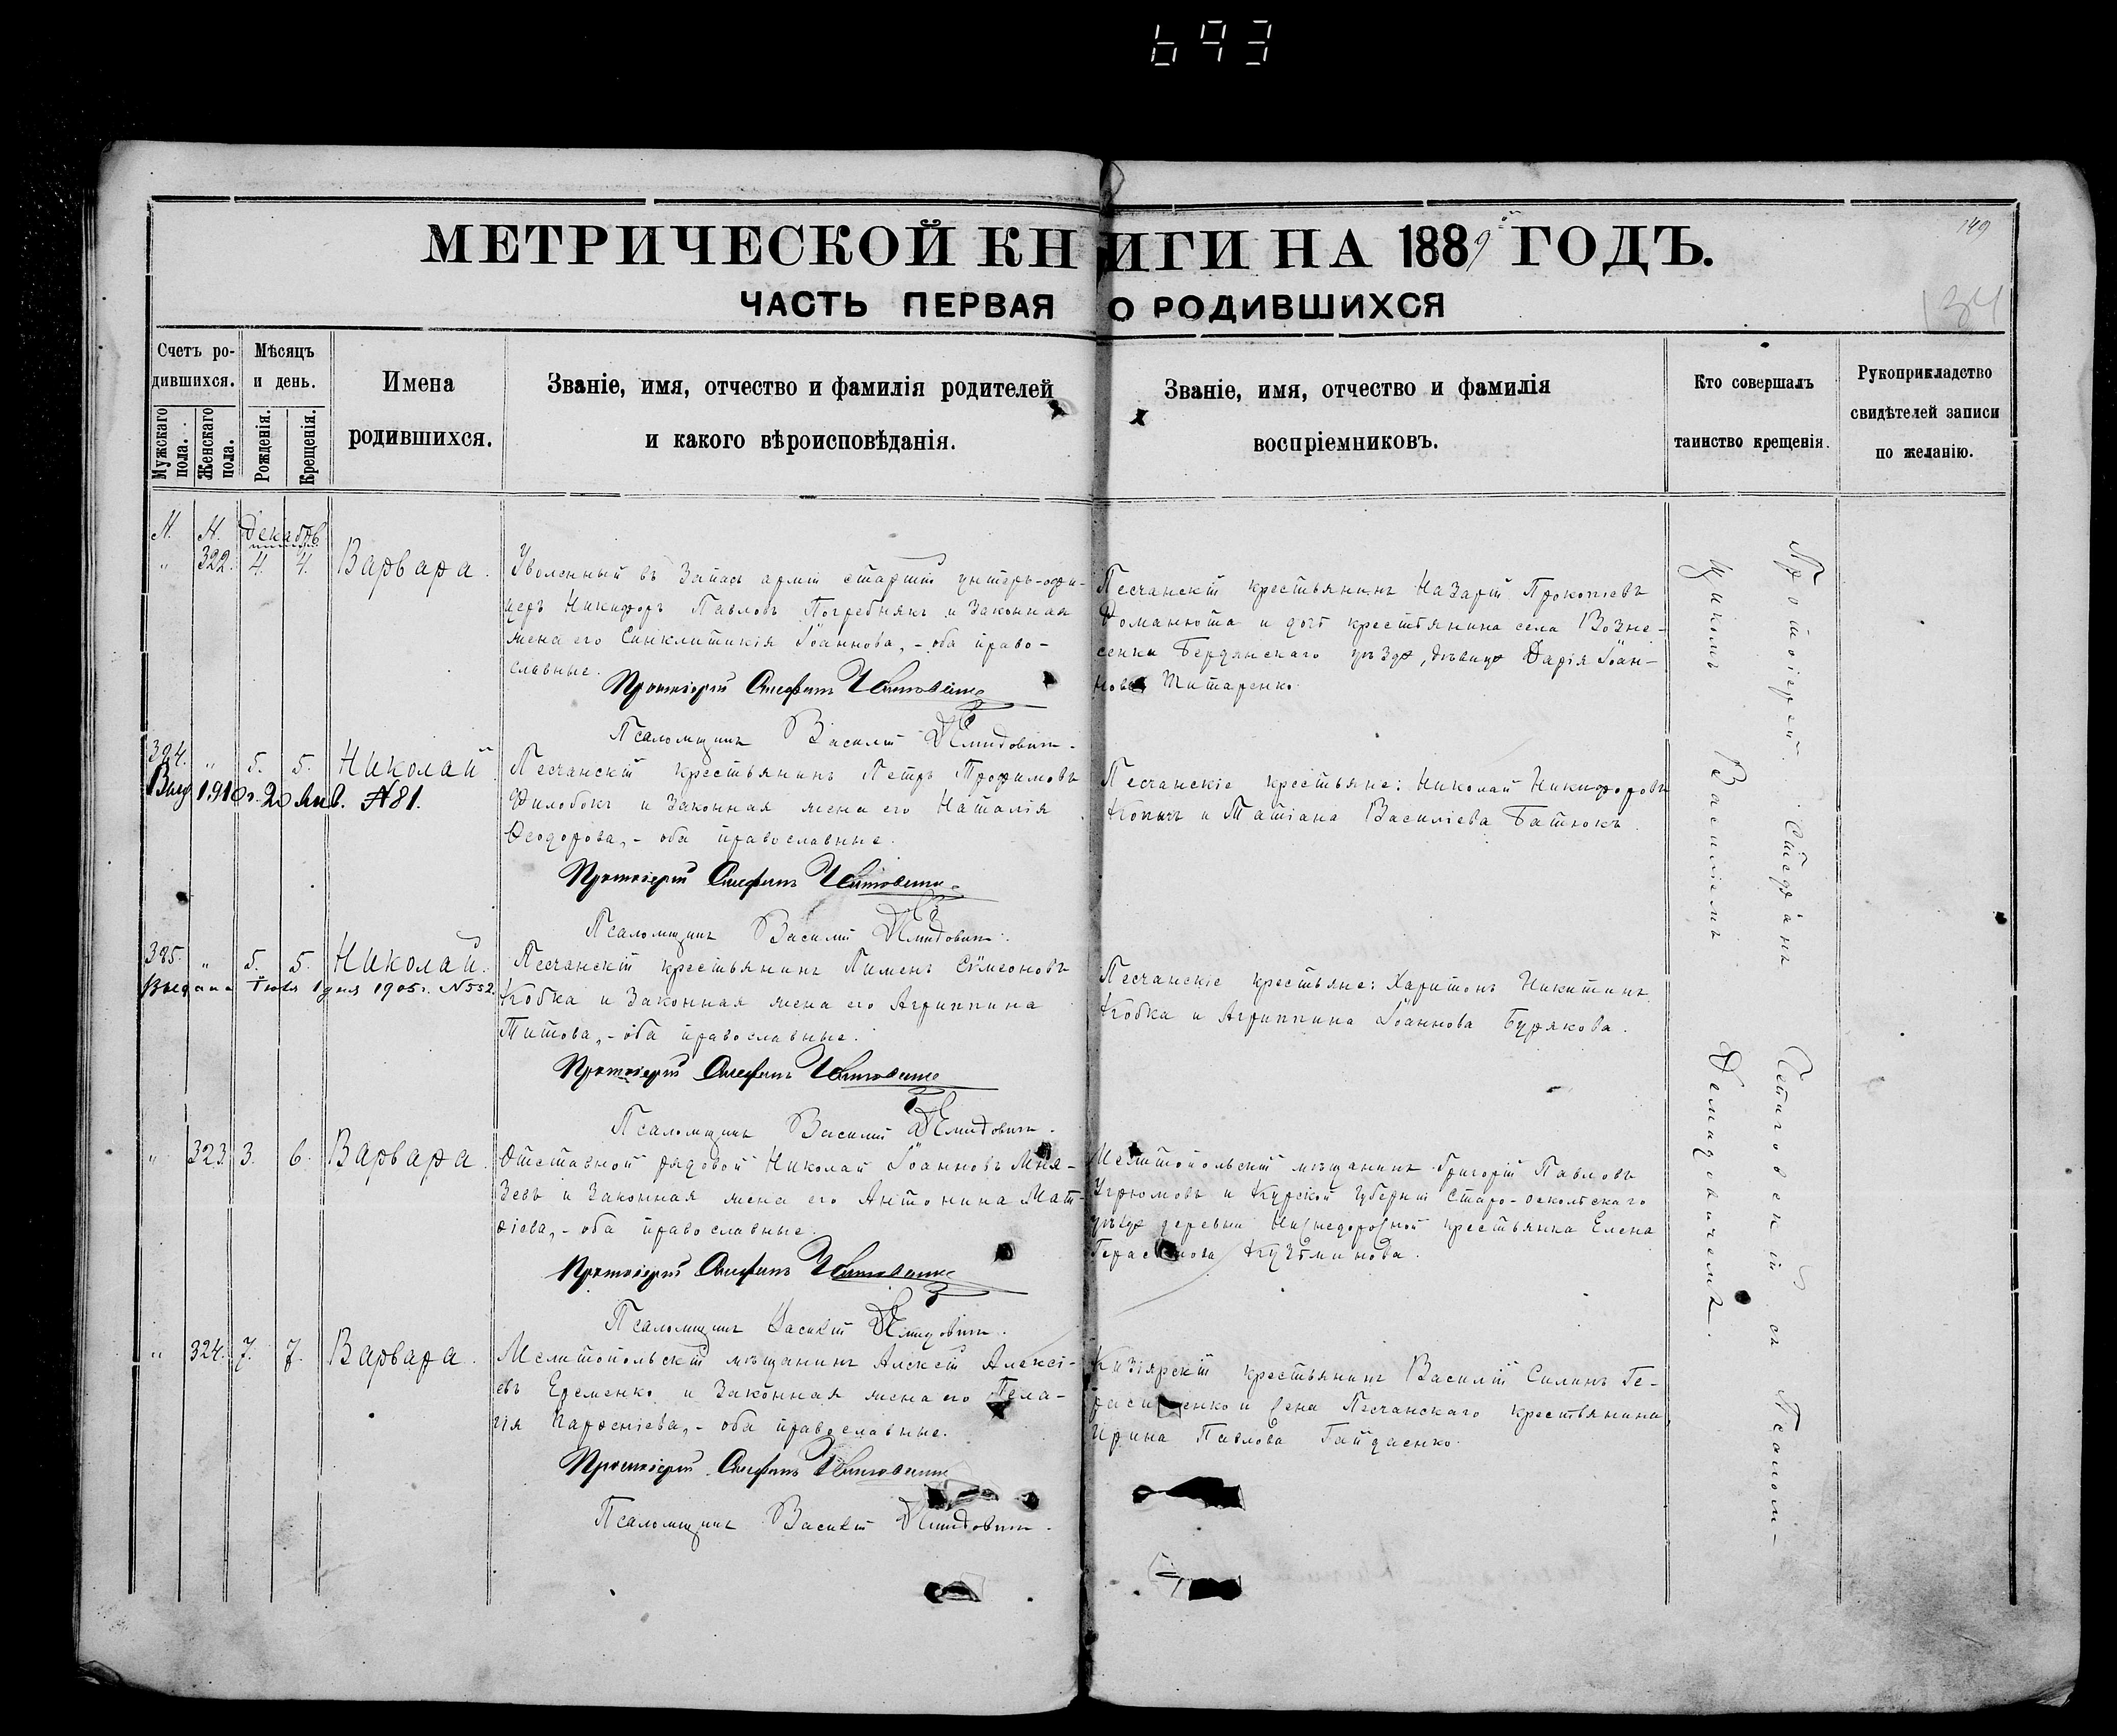 693
149
134
МЕТРИЧЕСКОЙ КНИГИ НА 1889й ГОДЪ.
ЧАСТЬ ПЕРВАЯ О РОДИВШИХСЯ
Счетъ ро-
дившихся.
Мужскаго пола.
Женскаго пола.
Мѣсяцъ
и день.
Рожденія.
Крещенія.
Имена
родившихся.
Званіе, имя, отчество и фамилія родителей
и какого вѣроисповѣданія.
Званіе, имя, отчество и фамилія
воспріемниковъ.
Кто совершалъ
таинство крещенія.
Рукоприкладство
свидѣтелей записи
по желанію.
М. Н. Декабрь
" 322. 4. 4. Варвара.
Уволенный въ Запасъ арміи старшій унтеръ-офи-
церъ Никифоръ Павловъ Погребнякъ и Законная
жена его Синклитикія Іоаннова, - оба право-
славные.
Протоіерей Стефанъ
Псаломщикъ Василій Демидовичъ.
Песчанскій крестьянинъ Назарій Прокопіевъ
Романюта и дочь крестьянина села Возне-
сенки Бердянскаго уѣзда, дѣвица Дарія Іоан-
нова Титаренко.
324. " 5. 5. Николай.
Выд. 1910 г. 20 Янв. №81.
Песчанскій крестьянинъ Петръ Трофимовъ
Филобокъ и Законная жена его Наталія
Ѳеодорова, - оба православные.
Протоіерей Стефанъ
Псаломщикъ Василій Демидовичъ.
Песчанскіе крестьяне: Николай Никифоровъ
и Татіана Василіева Батюкъ.
325. " 5. 5. Николай.
Выдана Іюля 1 дня 1905 г. №552
Песчанскій крестьянинъ Пименъ Симеоновъ
Кобка и Законная жена его Агриппина
Титова, - оба православные.
Протоіерей Стефанъ
Псаломщикъ Василій Демидовичъ.
Песчанскіе крестьяне: Харитонъ Никитинъ
Кобка и Агриппина Іоаннова Бурякова.
" 323. 3. 6. Варвара.
Отставной рядовой Николай Іоанновъ Мня-
зевъ и Законная жена его Антонина Мат-
ѳіева, - оба православные.
Протоіерей Стефанъ
Псаломщикъ Василій Демидовичъ.
Мелитопольскій мѣщанинъ Григорій Павловъ
Угрюмовъ и Курской губерніи Старо-оскольскаго
уѣзда деревни крестьянка Елена
Герасимова Кузьминова.
" 324. 7. 7. Варвара.
Мелитопольскій мѣщанинъ Алексій Алексі-
евъ Еременко и Законная жена его Пела-
гія Парѳеніева, - оба православные.
Протоіерей Стефанъ
Псаломщикъ Василій Демидовичъ.
Кизіярскій крестьянинъ Василій Силинъ Ге-
расименко и жена Песчанскаго крестьянина
Ирина Павлова Гайдаенко.
Протоіерей Стефанъ съ Псалом-
щикомъ Василіемъ Демидовичемъ.